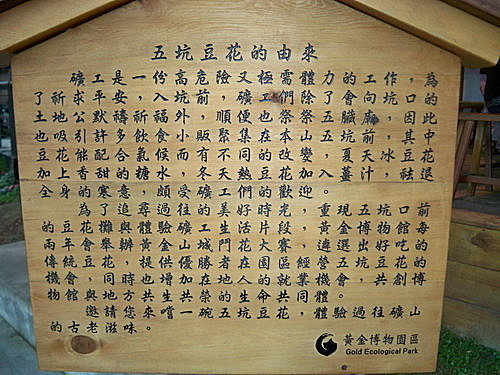 五坑豆花的由來
礦工是一份高危險又極需體力的工作,為
了祈求平安,入坑前,礦工們除了會向坑口的
土地公默禱祈福外,順便也祭祭五臟廟,因此
也吸引許多飲食小販聚集在本山五坑前,其中
豆花能配合氣候而有不同的改變,夏天冰豆花
加上香甜的糖水,冬天熱豆花加入薑汁,祛退
全身的寒意,頗受礦工們的歡迎。
為了追尋過往的美好時光,重現五坑口前
的豆花攤與體驗礦工生活片段,黃金博物館每
兩年會舉辦黃金山城鬥花大賽,遴選出好吃的
傳統豆花,提供優勝者在園區經營五坑豆花的
機會,同時也增加在地人的就業機會,共創博
物館與地方共生共榮的生命共同體。
邀請您來嚐一碗五坑豆花,體驗過往礦山
的古老滋味。
黃金博物園區
Gold Ecological Park